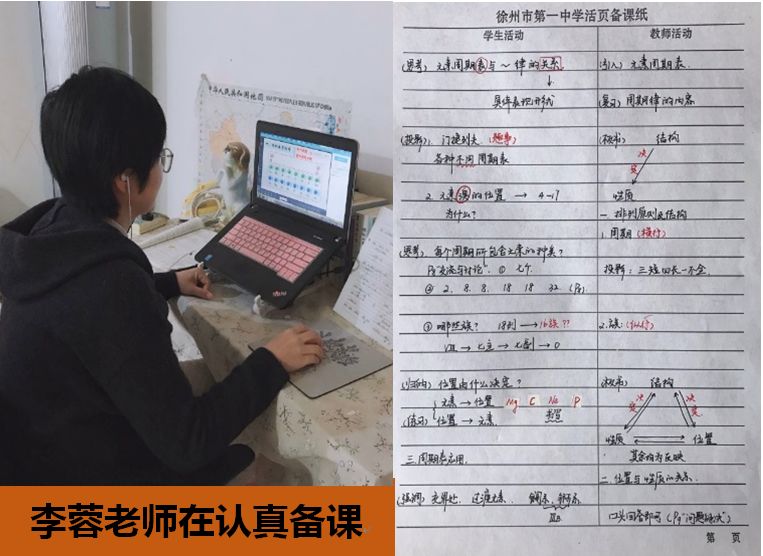 中华人民共和国地图
李蓉老师在认真备课
徐州市第一中学活页备课纸
学生活动 教师活动
(思考) 元素周期表与~律的关系 (引入) 元素周期表
具体表现形式 (复习) 周期律的内容
(投影): 门捷列夫 (趣事) (板书) 结构
各种不同周期表 决定
2. 元素 的位置 → 性质
为什么? 一. 排列原则及结构
1. 周期 (横行)
(思考) 每个周期所包含元素的种类?
"交流与讨论" ① 七个 投影: 三短四长
② 2. 8. 8. 18 18 32
③ 哪些族? 18列 → 16族?? 2. 族:
VIII → 七主 → 七副 → 0
(归纳) 位置由什么决定? (板书) 结构
元素 → 位置 Mg C Ne P 决定 决定
(练习) 位置 → 元素 性质 位置
三. 周期表应用 其余均为反映
二. 位置与性质的关系
(强调) 交界处. 过渡元素. 镧系. 锕系
IIIB 口头回答即可
第 页